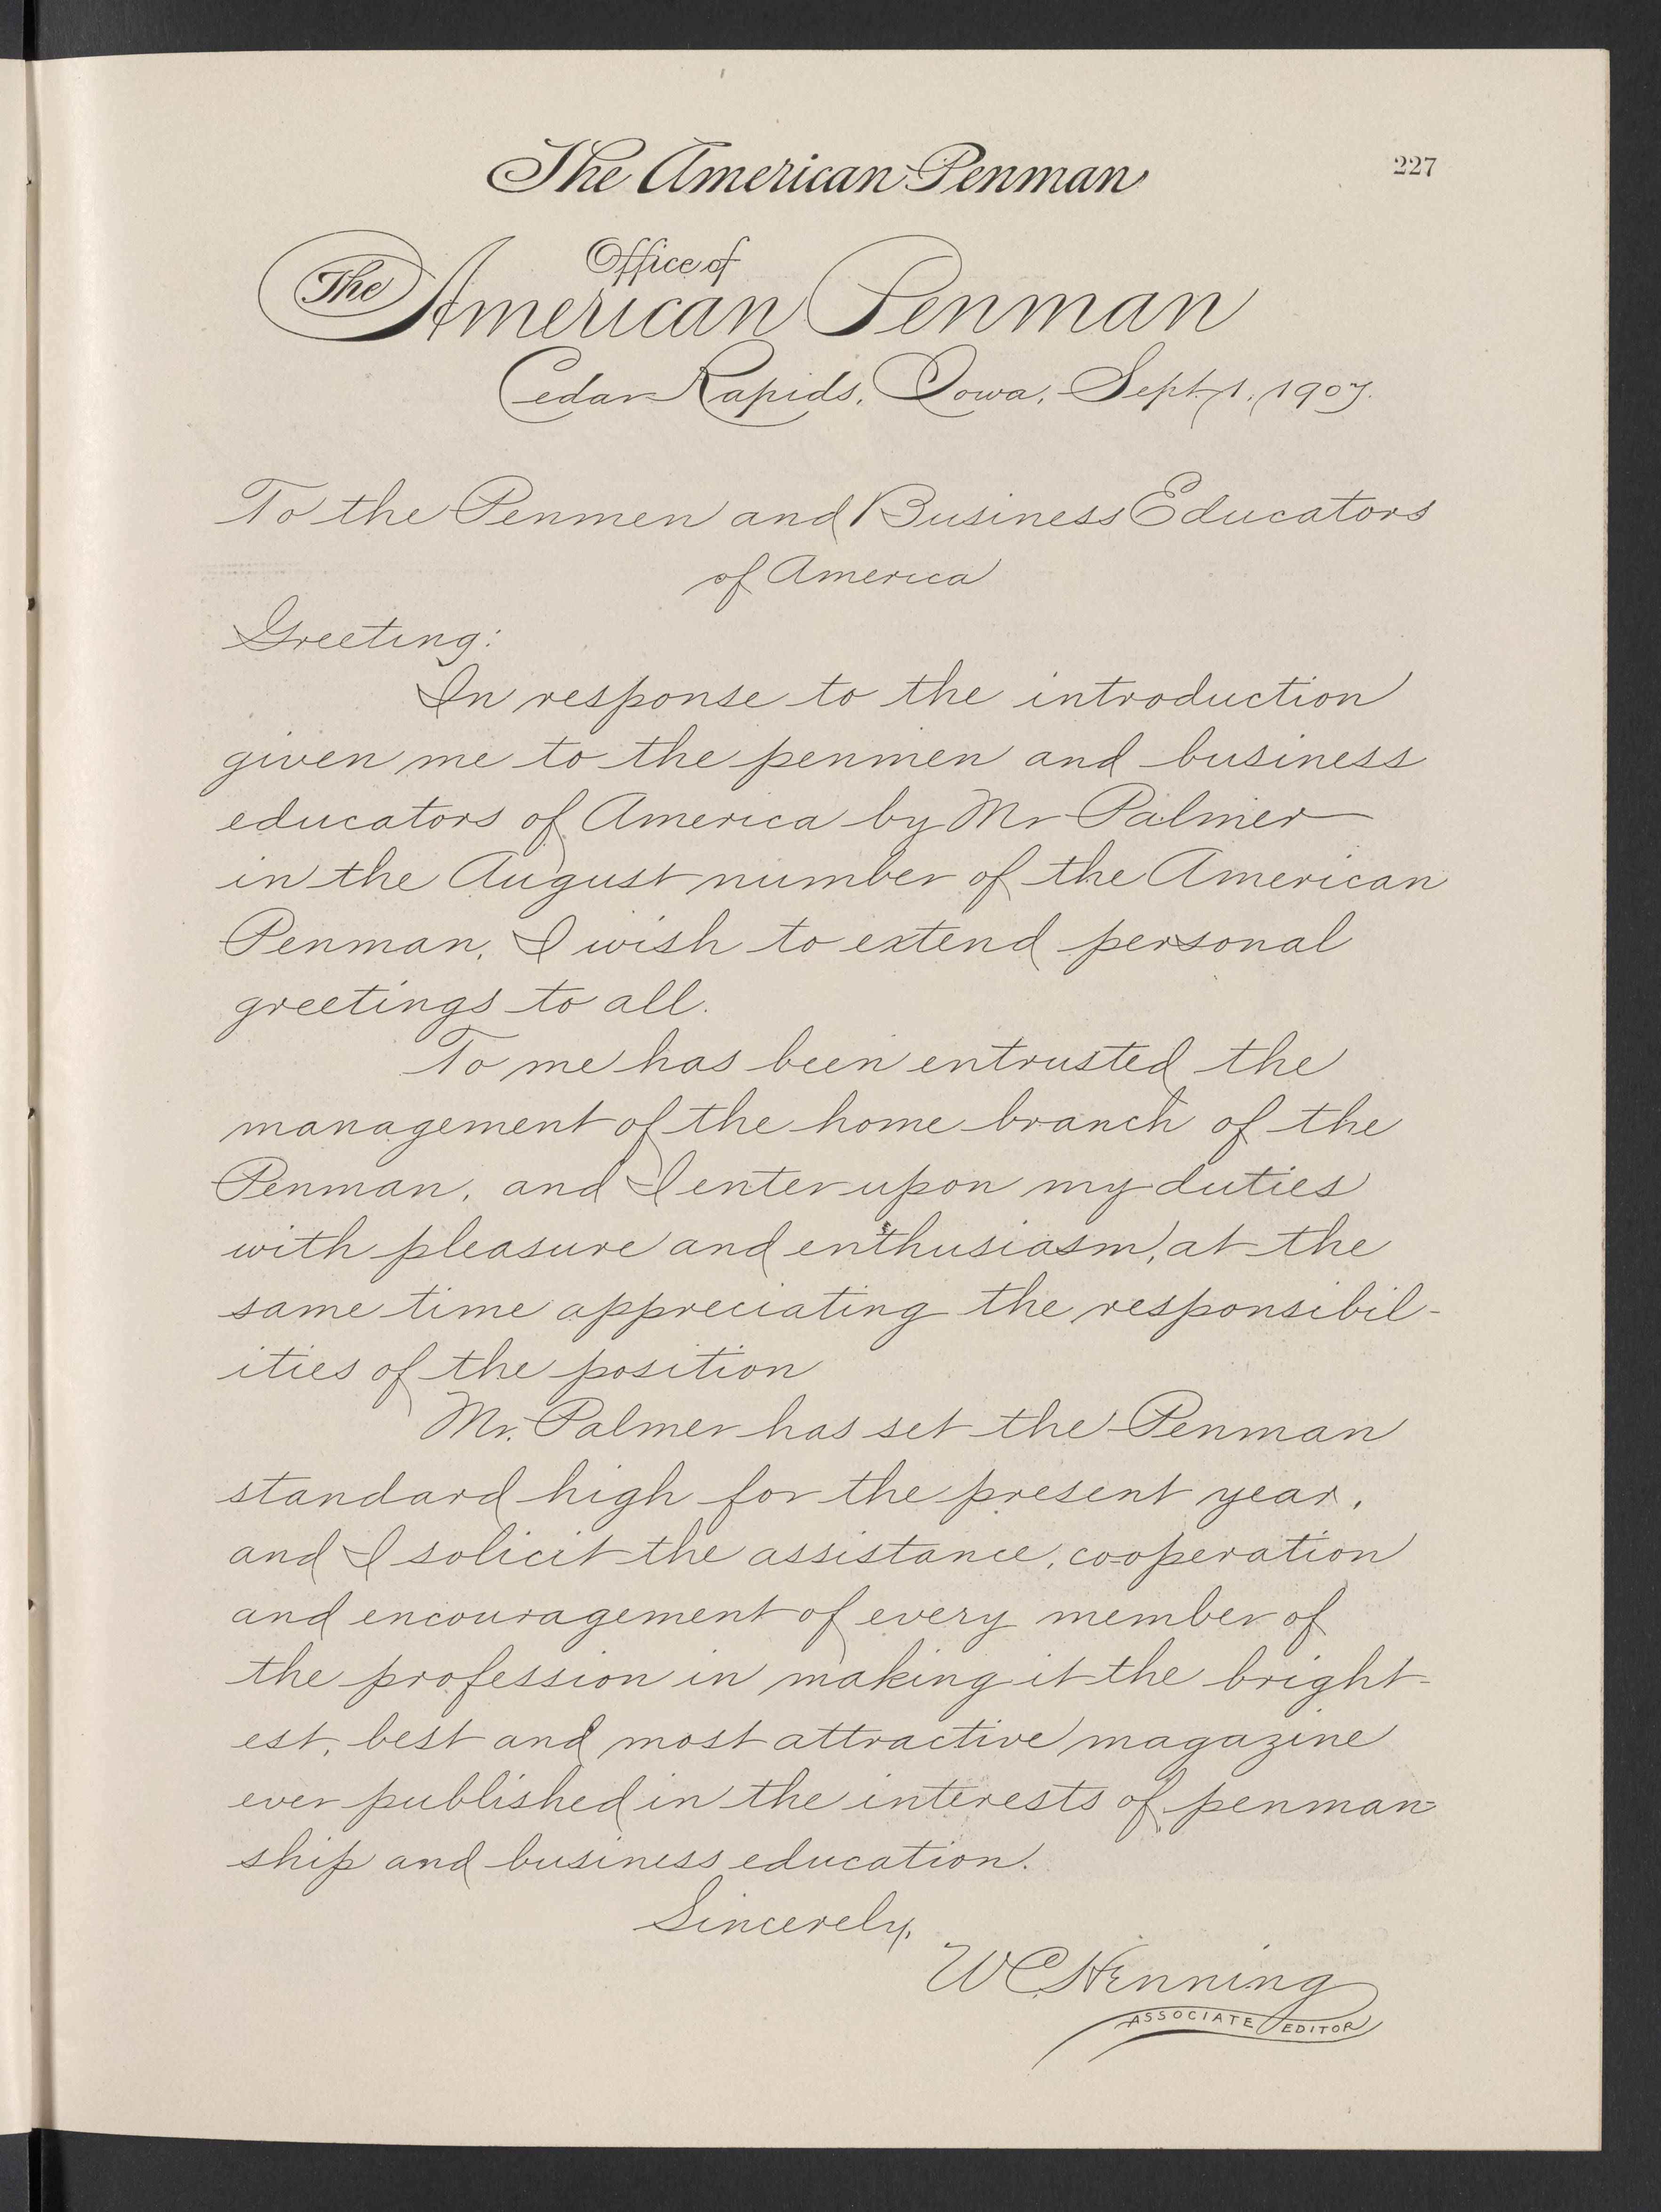 The American Penman
227
Office of
The American Penman
Cedar Rapids, Iowa, Sept. 1, 1907.
To the Penmen and Business Educators
of America
Greeting:
In response to the introduction
given me to the penmen and business
educators of America by Mr Palmer
in the August number of the American
Penman, I wish to extend personal
greetings to all.
To me has been entrusted the
management of the home branch of the
Penman, and I enter upon my duties
with pleasure and enthusiasm, at the
same time appreciating the responsibil-
ities of the position
Mr. Palmer has set the Penman
standard high for the present year,
and I solicit the assistance, cooperation
and encouragement of every member of
the profession in making it the bright-
est, best and most attractive magazine
ever published in the interests of penman-
ship and business education.
Sincerely,
W C Henning
ASSOCIATE EDITOR